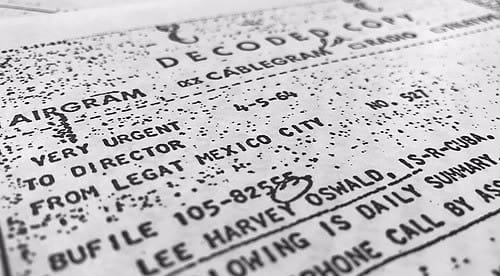 DECODED COPY
AIRGRAM CABLEGRAM RADIO
VERY URGENT 4-5-64
TO DIRECTOR
FROM LEGAT MEXICO CITY NO. 527
BUFILE 105-82555
LEE HARVEY OSWALD, IS-R-CUBA.
LOWING IS DAILY SUMMARY
PHONE CALL BY AS